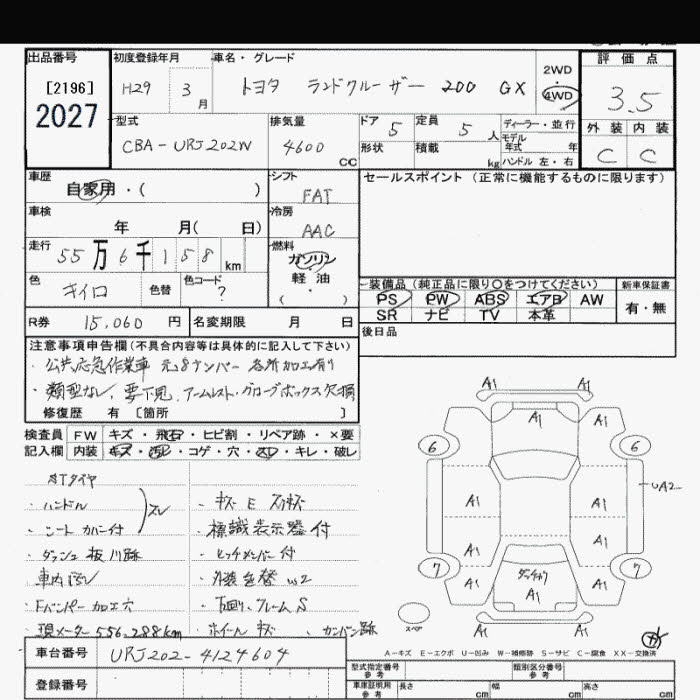 出品番号
[2196]
2027
初度登録年月
H29 3月
車名・グレード
トヨタ ランドクルーザー 200 GX
2WD
・
4WD
評価点
3.5
外装 内装
C C
型式
CBA-URJ202W
排気量
4600 CC
ドア 5
形状
定員 5人
積載 kg
ディーラー・並行
モデル
年式 年
ハンドル 左・右
車歴
自家用・( )
シフト
FAT
セールスポイント(正常に機能するものに限ります)
車検
年 月( 日)
冷房
AAC
走行
55万6千158km
燃料
ガソリン
軽油
( ・ )
色
キイロ
色替
色コード
?
装備品(純正品に限り○をつけてください)
PS PW ABS エアB AW
SR ナビ TV 本革
新車保証書
有・無
R券 15,060 円
名変期限 月 日
後日品
注意事項申告欄(不具合内容等は具体的に記入して下さい)
・公共応急作業車 元8ナンバー 各所加工有り
・類型なし、要下見、アームレスト・グローブボックス欠損
修復歴 有 [箇所 ]
検査員 FW キズ・飛石・ヒビ割・リペア跡・×要
記入欄 内装 キズ・汚れ・コゲ・穴・スレ・キレ・破レ
・ハンドル
・シート カバー付
スレ
・ダッシュ 板 ハリ跡
・車内汚レ
・Fバンパー加工穴
・現メーター 556,288km
・キズ E スリキズ
・標識表示器付
・ヒッチメンバー付
・外装色替 W2
・下廻り、フレームS
・ホイールキズ
・カンバン跡
A1 A1
A1
6 6
A1 A1
UA2
A1 A1
7 7
A1 A1
A1
A1 A1
スペア
A-キズ E-エクボ U-凹み W-補修跡 S-サビ C-腐食 XX-交換済
車台番号 URJ202-4124604
登録番号
型式指定番号
参考
類別区分番号
参考
車庫証明用
参考
長さ cm
幅 cm
高さ cm